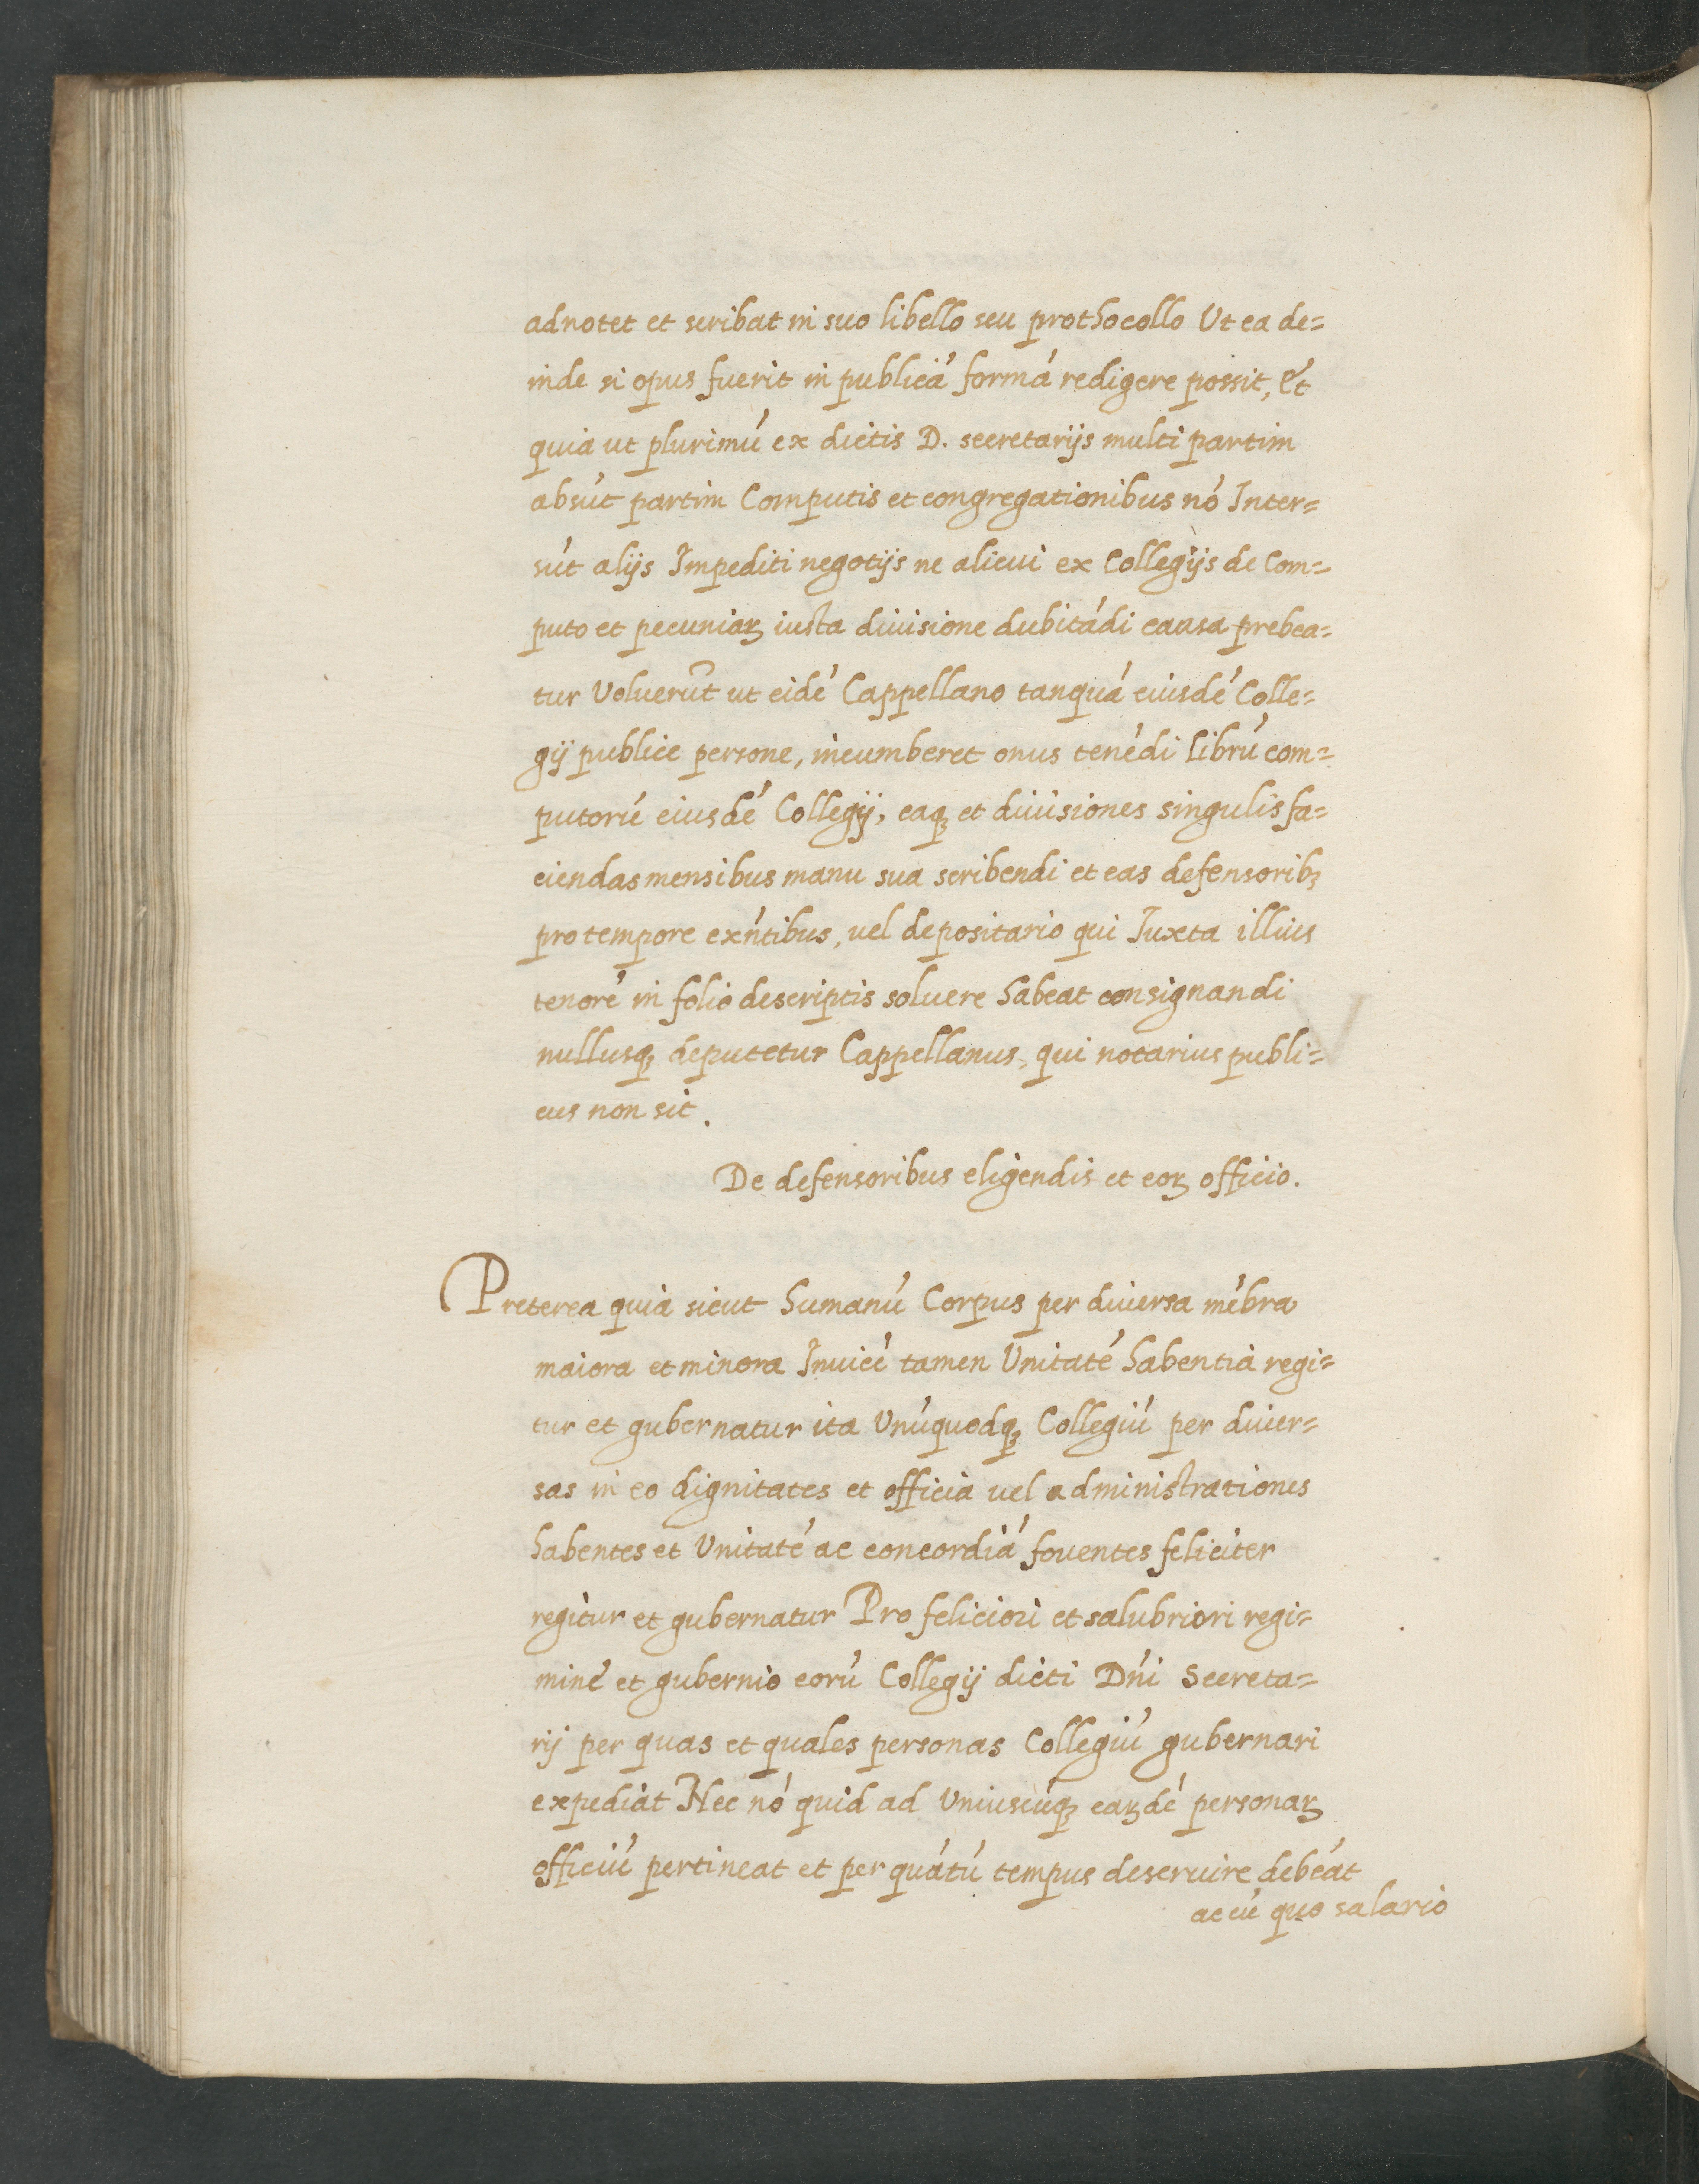 adnotet et scribat in suo libello seu prothocollo Ut ea de=
inde si opus fuerit in publicá formá redigere possit, Et
quia ut plurimú ex dictis D. secretarijs multi partim
absút partim Computis et congregationibus nó Inter=
sút alijs Impediti negotijs ne alicui ex Collegijs de Com=
puto et pecuniaꝝ iusta diuisione dubitádi causa prebea=
tur Voluerút ut eidé Cappellano tanquá eiusdé Colle=
gij publice persone, incumberet onus tenédi librú com=
putorú eiusdé Collegij, eaqꝫ et diuisiones singulis fa=
ciendas mensibus manu sua scribendi et eas defensoribꝫ
pro tempore exńtibus, vel depositario qui Iuxta illius
tenoré in folio descriptis soluere habeat consignandi
nullusqꝫ deputetur Cappellanus, qui notarius publi=
cus non sit.
De defensoribus eligendis et eoꝝ officio.
Preterea quia sicut humanú Corpus per diuersa mébra
maiora et minora Inuicé tamen Unitaté habentia regi=
tur et gubernatur ita Unúquodqꝫ Collegiú per diuer=
sas in eo dignitates et officia uel administrationes
habentes et Unitaté ac concordiá fouentes feliciter
regitur et gubernatur Pro feliciori et salubriori regi=
miné et gubernio eorú Collegij dicti Dńi Secreta=
rij per quas et quales personas Collegiú gubernari
expediat Nec nó quid ad Uniuscúqꝫ eaꝝdé personaꝝ
officiú pertineat et per quátú tempus deseruire debeát
ac cú quo salario